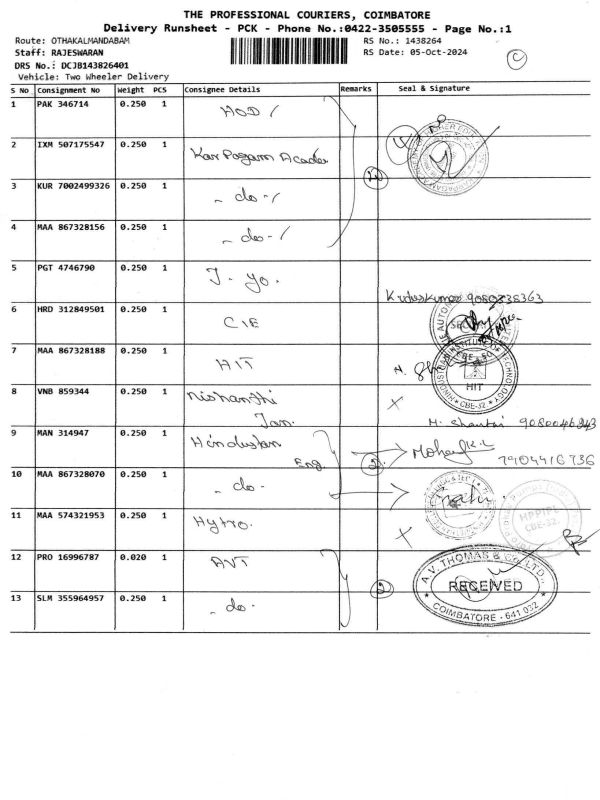 THE PROFESSIONAL COURIERS, COIMBATORE
Delivery Runsheet - PCK - Phone No.:0422-3505555 - Page No.:1
Route: OTHAKALMANDABAM RS No.: 1438264
Staff: RAJESWARAN RS Date: 05-Oct-2024
DRS No.: DCJB143826401
Vehicle: Two Wheeler Delivery
S No Consignment No Weight PCS Consignee Details Remarks Seal & Signature
1 PAK 346714 0.250 1 HOD
2 IXM 507175547 0.250 1 Karpagam Acade
3 KUR 7002499326 0.250 1 - do -
4 MAA 867328156 0.250 1 - do -
5 PGT 4746790 0.250 1 J. yo.
9080838363
6 HRD 312849501 0.250 1 CIE
7 MAA 867328188 0.250 1 HIT
HIT
CBE-32
8 VNB 859344 0.250 1 Nishanthi
Jan.
M. Shanthi 9080046843
9 MAN 314947 0.250 1 Hindustan
Eng. 2 Mohan K.L
7904416736
10 MAA 867328070 0.250 1 - do -
11 MAA 574321953 0.250 1 Hytro.
HPPIPL
CBE-32.
12 PRO 16996787 0.020 1 AVT
2
A.V. THOMAS & CO. LTD.,
RECEIVED
COIMBATORE - 641 032
13 SLM 355964957 0.250 1 - do -